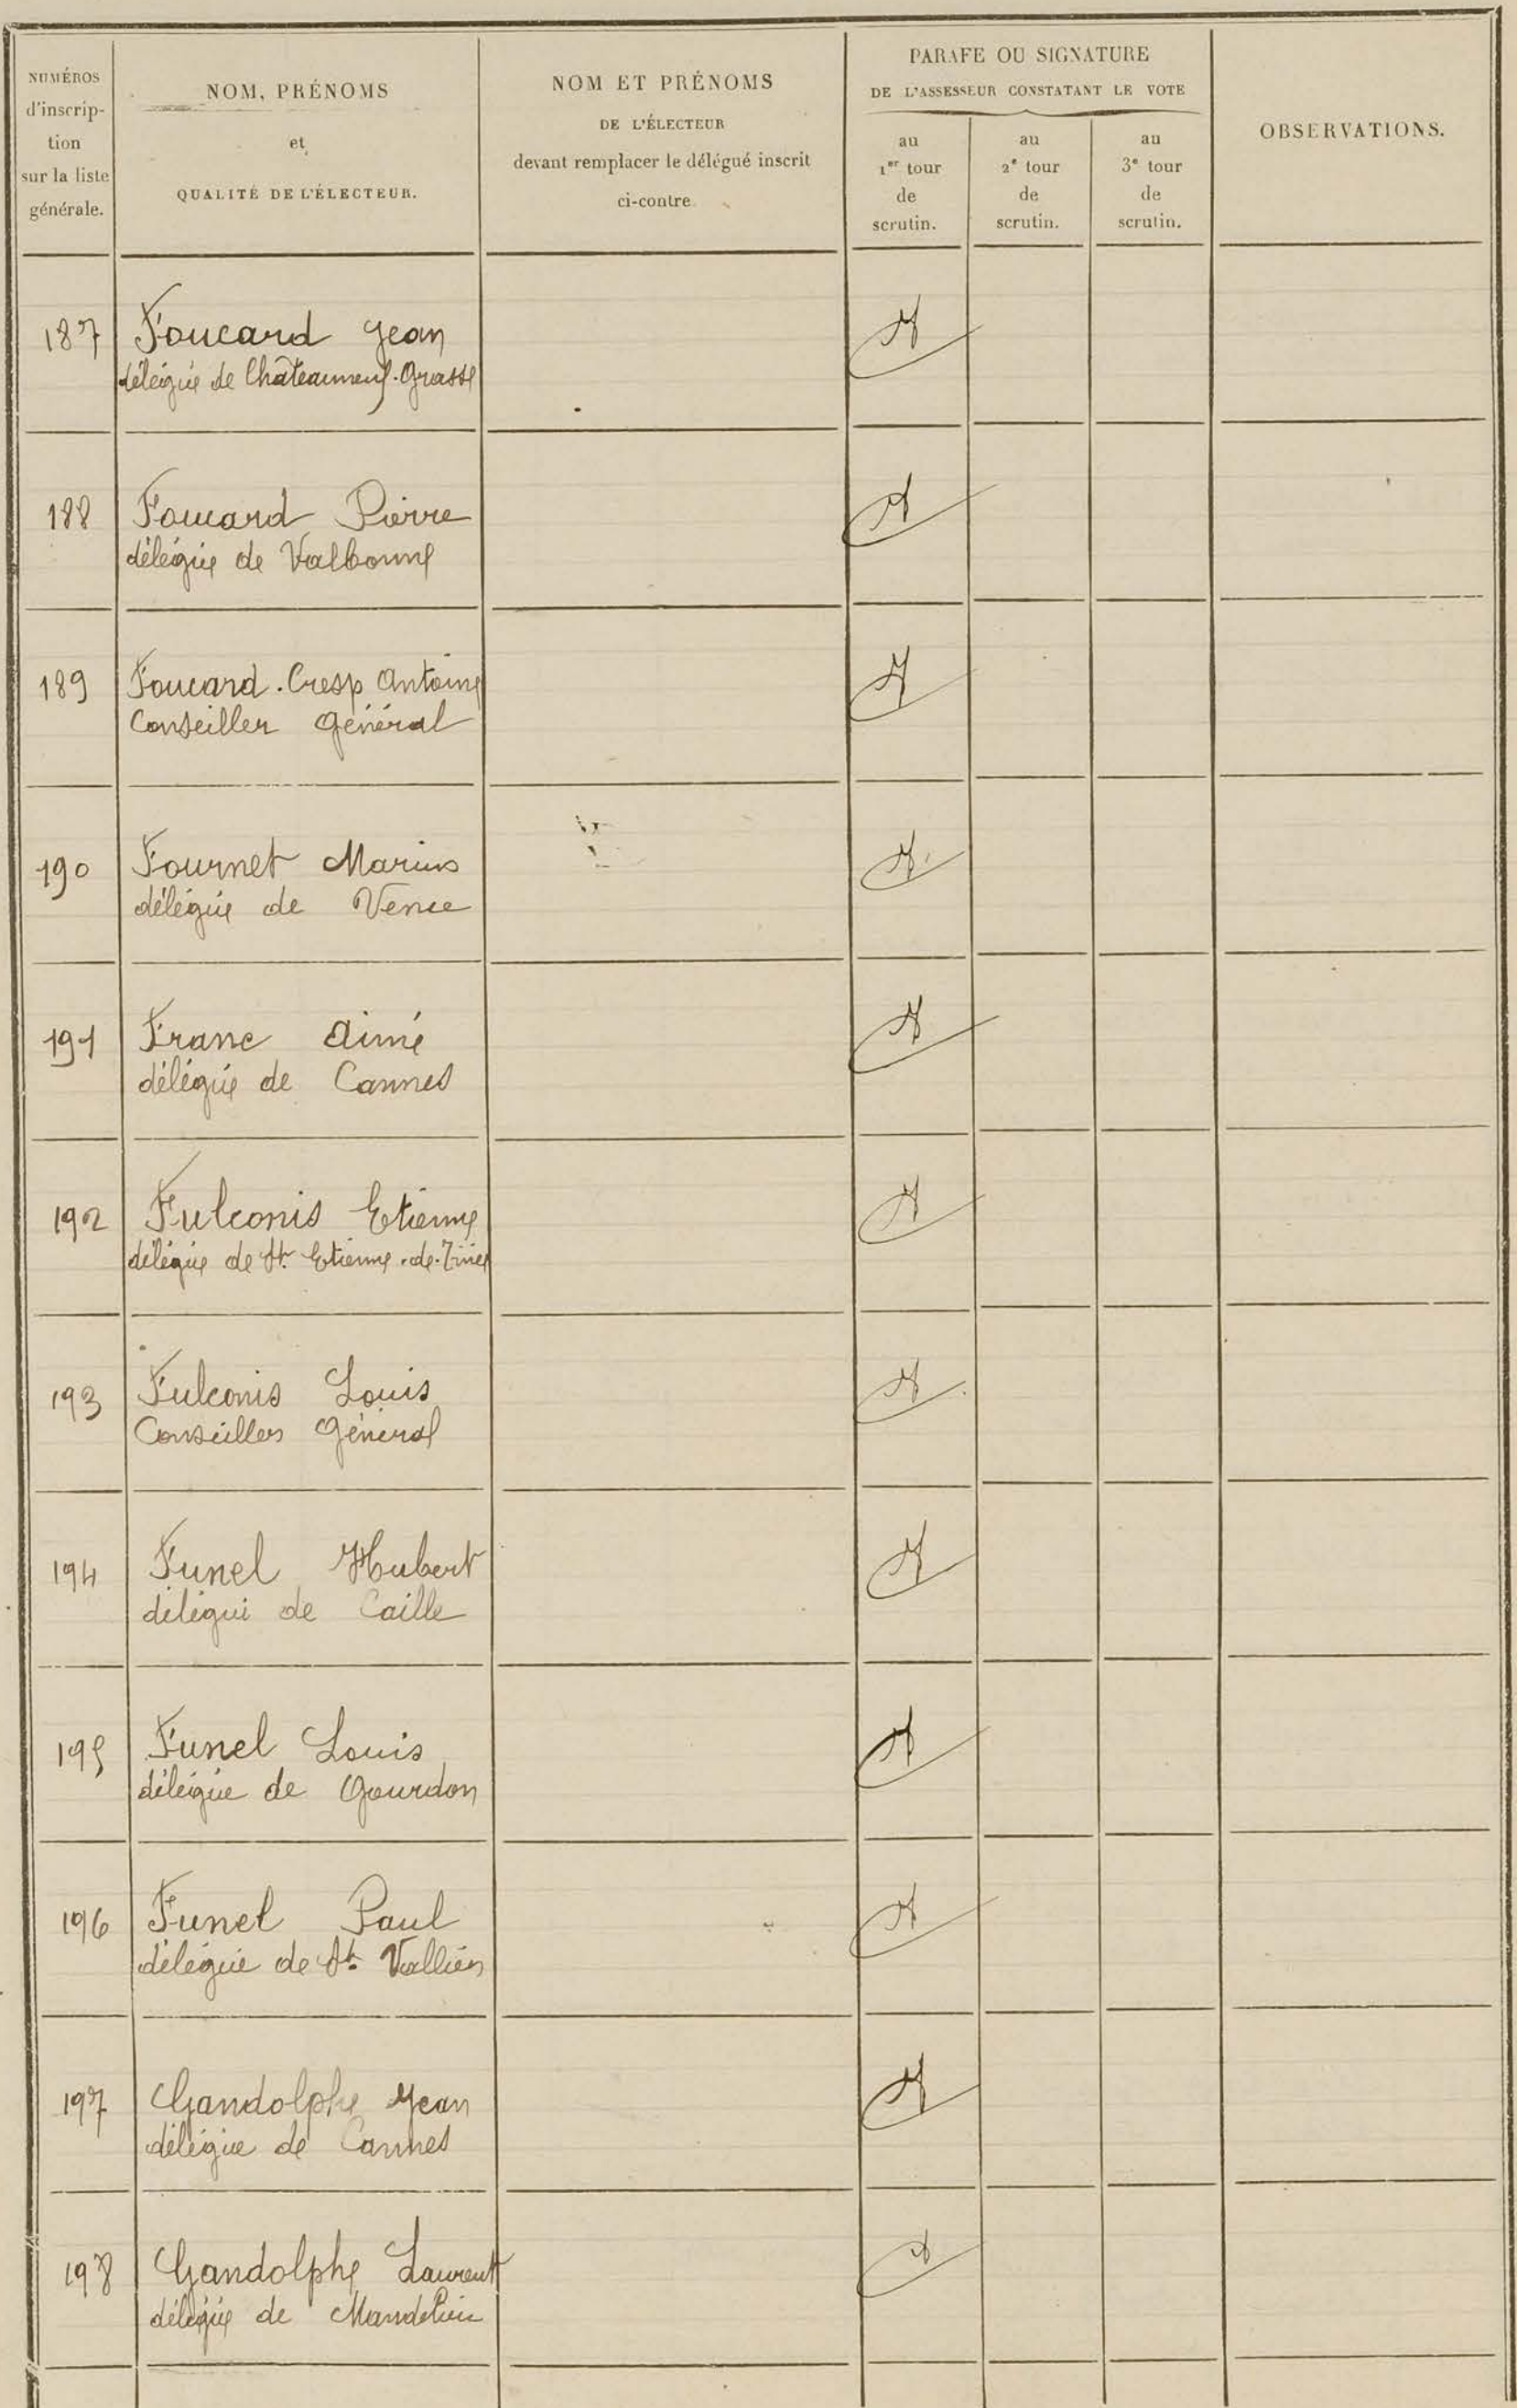 NUMÉROS
d'inscrip-
tion
sur la liste
générale.
NOM, PRÉNOMS
et
QUALITÉ DE L'ÉLECTEUR.
NOM ET PRÉNOMS
DE L'ÉLECTEUR
devant remplacer le délégué inscrit
ci-contre
PARAFE OU SIGNATURE
DE L'ASSESSEUR CONSTATANT LE VOTE
au
1er tour
de
scrutin.
au
2e tour
de
scrutin.
au
3e tour
de
scrutin.
OBSERVATIONS.
187 Foucard Jean
délégué de Châteauneuf-Grasse
188 Foucard Pierre
délégué de Valbonne
189 Foucard-Cresp Antoine
Conseiller Général
190 Fournet Marius
délégué de Vence
191 Franc Aimé
délégué de Cannes
192 Fulconis Etienne
délégué de St Etienne-de-Tinée
193 Fulconis Louis
Conseiller Général
194 Funel Hubert
délégué de Caille
195 Funel Louis
délégué de Gourdon
196 Funel Paul
délégué de St Vallier
197 Gandolphe Jean
délégué de Cannes
198 Gandolphe Laurent
délégué de Mandelieu